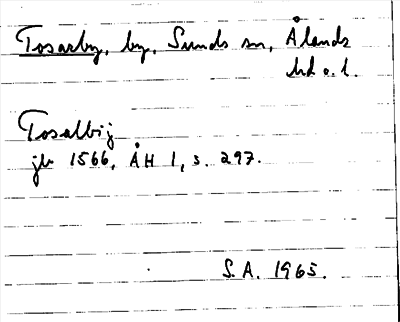 Tosarby, by, Sunds sn, Ålands
hd o. l.
Tosalbij
jb 1566, ÅH 1, s. 297.
S.A. 1965.